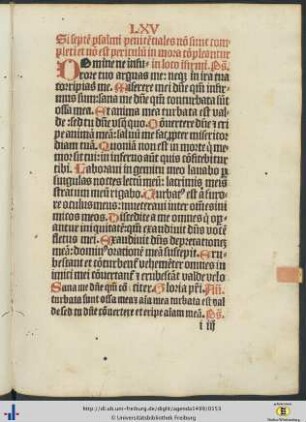 LXV
Si septē psalmi penitētiales nō sunt com
pleti et nō est periculū in mora cōpleantur
Domine ne in fu- in loco infirmi. Ps.
rore tuo arguas me: neqz in ira tua
corripias me. Miserere mei dn̄e qm̄ infir-
mus sum: sana me dn̄e qm̄ conturbata sūt
ossa mea. Et anima mea turbata est val
de: sed tu dn̄e usq quo. Conuertere dn̄e ⁊ eri
pe animā meā: saluū me fac ꝓpter misericor
diam tuā. Quoniā non est in morte q me
mor sit tui: in inferno aūt quis cōfitebitur
tibi. Laboraui in gemitu meo lauabo ꝑ
singulas noctes lectū meū: lacrimis meis
stratum meū rigabo. Turbat⁹ est a furo-
re oculus meus: inueteraui inter oēs ini
micos meos. Discedite a me omnes q ope
rant iniquitatē: qm̄ exaudiuit dn̄s vocē
fletus mei. Exaudiuit dn̄s deprecationem
meā: domin⁹ orationē meā suscepit. Eru
bescant et cōturbent vehemēter omnes in
imici mei cōuertant ⁊ erubescāt valde velo
Sana me dn̄e qm̄ cō- citer. Gloria pr̄i. An.
turbata sunt ossa mea: ⁊ aīa mea turbata est val
de sed tu dn̄e cōuertere et eripe aīam meā. Ps.
i iij
http://dl.ub.uni-freiburg.de/diglit/agenda1499/0153
© Universitätsbibliothek Freiburg